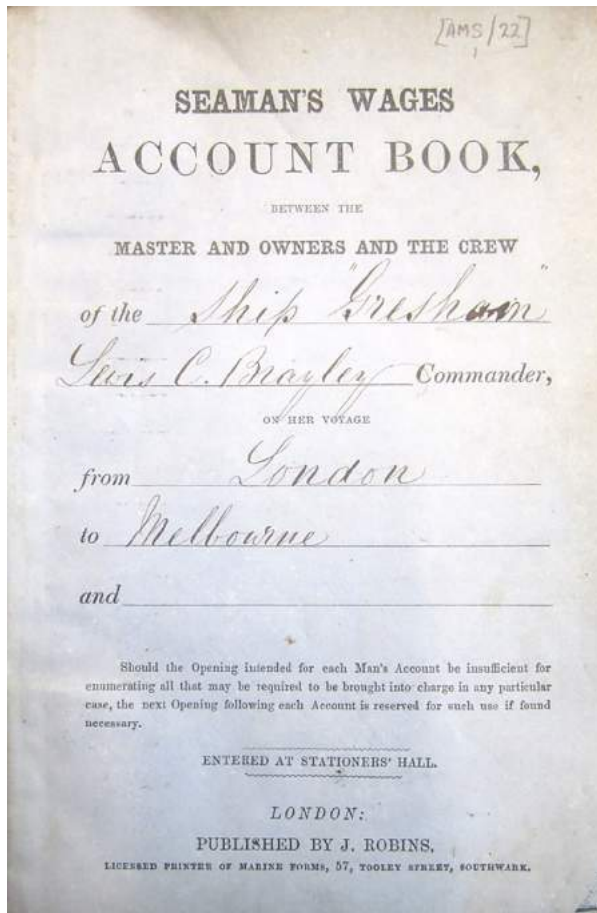 [AMS/22]
SEAMAN'S WAGES
ACCOUNT BOOK,
BETWEEN THE
MASTER AND OWNERS AND THE CREW
of the Ship "Gresham"
Lewis C. Brayley Commander,
ON HER VOYAGE
from London
to Melbourne
and
Should the Opening intended for each Man's Account be insufficient for
enumerating all that may be required to be brought into charge in any particular
case, the next Opening following each Account is reserved for such use if found
necessary.
ENTERED AT STATIONERS' HALL.
LONDON:
PUBLISHED BY J. ROBINS,
LICENSED PRINTER OF MARINE FORMS, 57, TOOLEY STREET, SOUTHWARK.